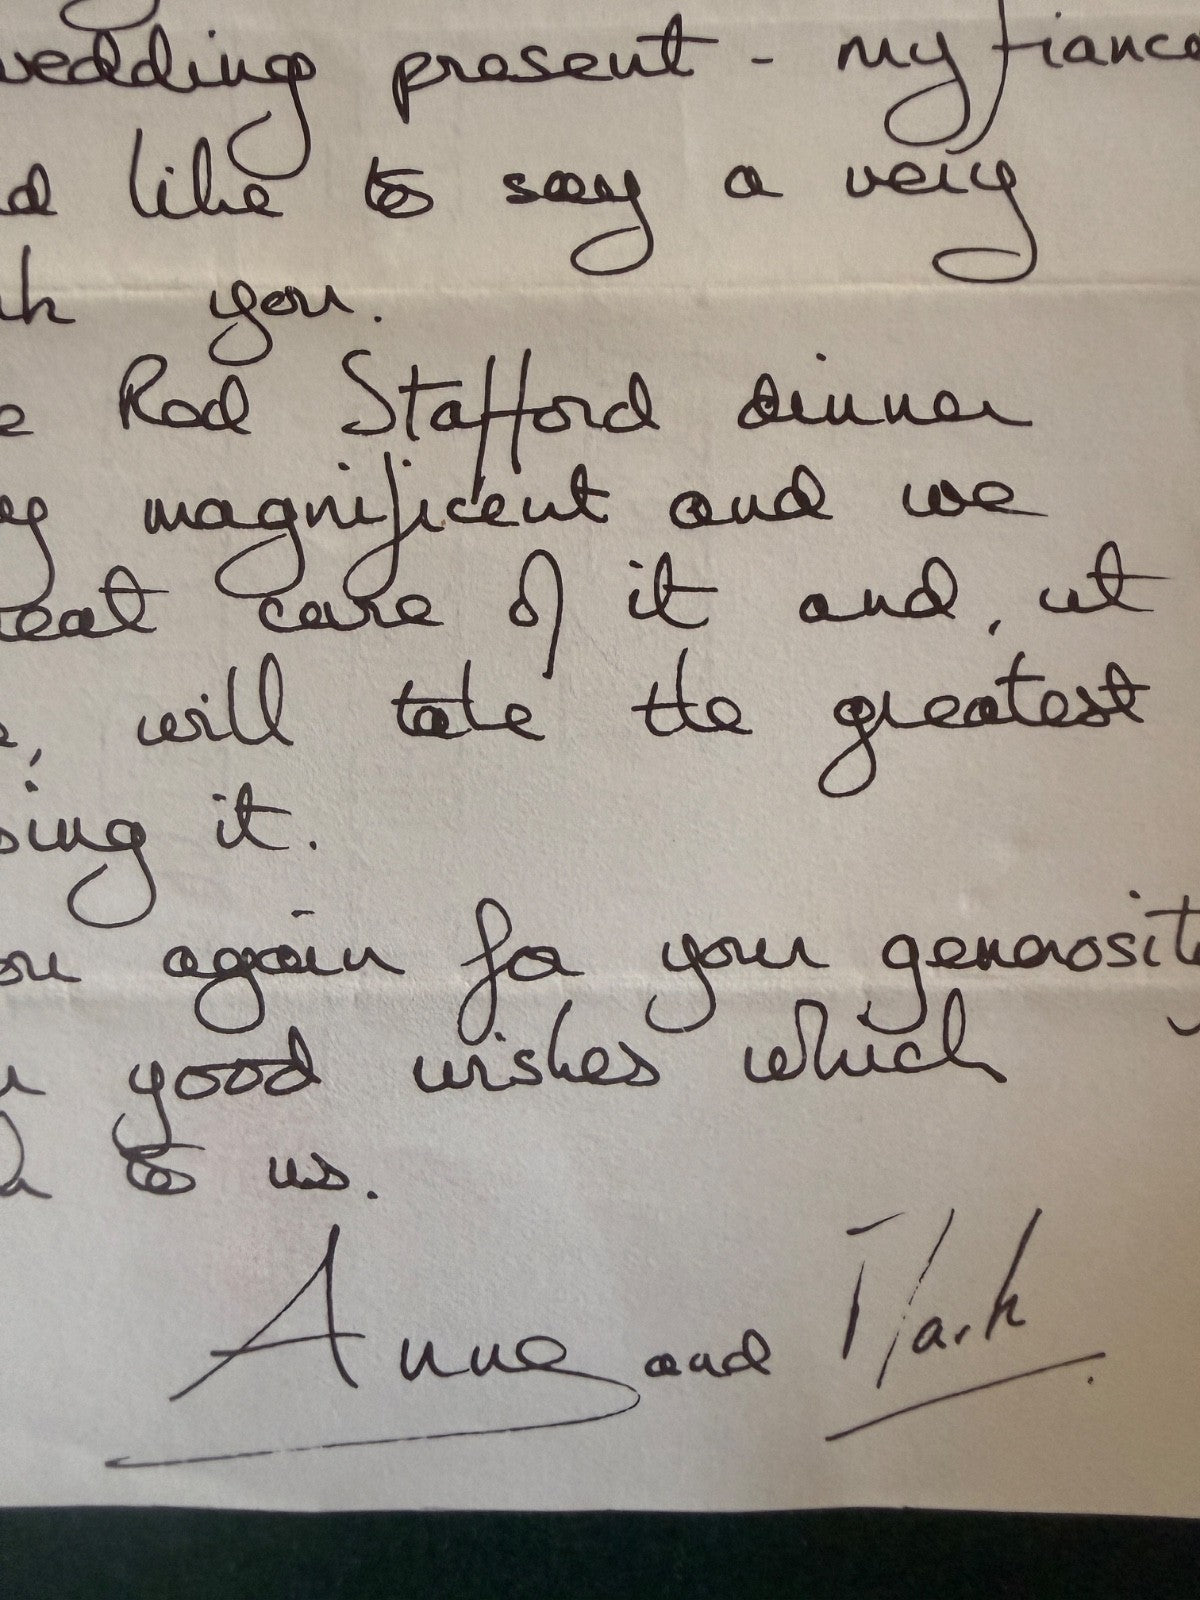 wedding present - my fiance
d like to say a very
nk you.
e Red Stafford dinner
magnificent and we
reat care of it and, ut
e, will take the greatest
sing it.
ou again for your generosity
good wishes which
to us.
Anne and Mark.